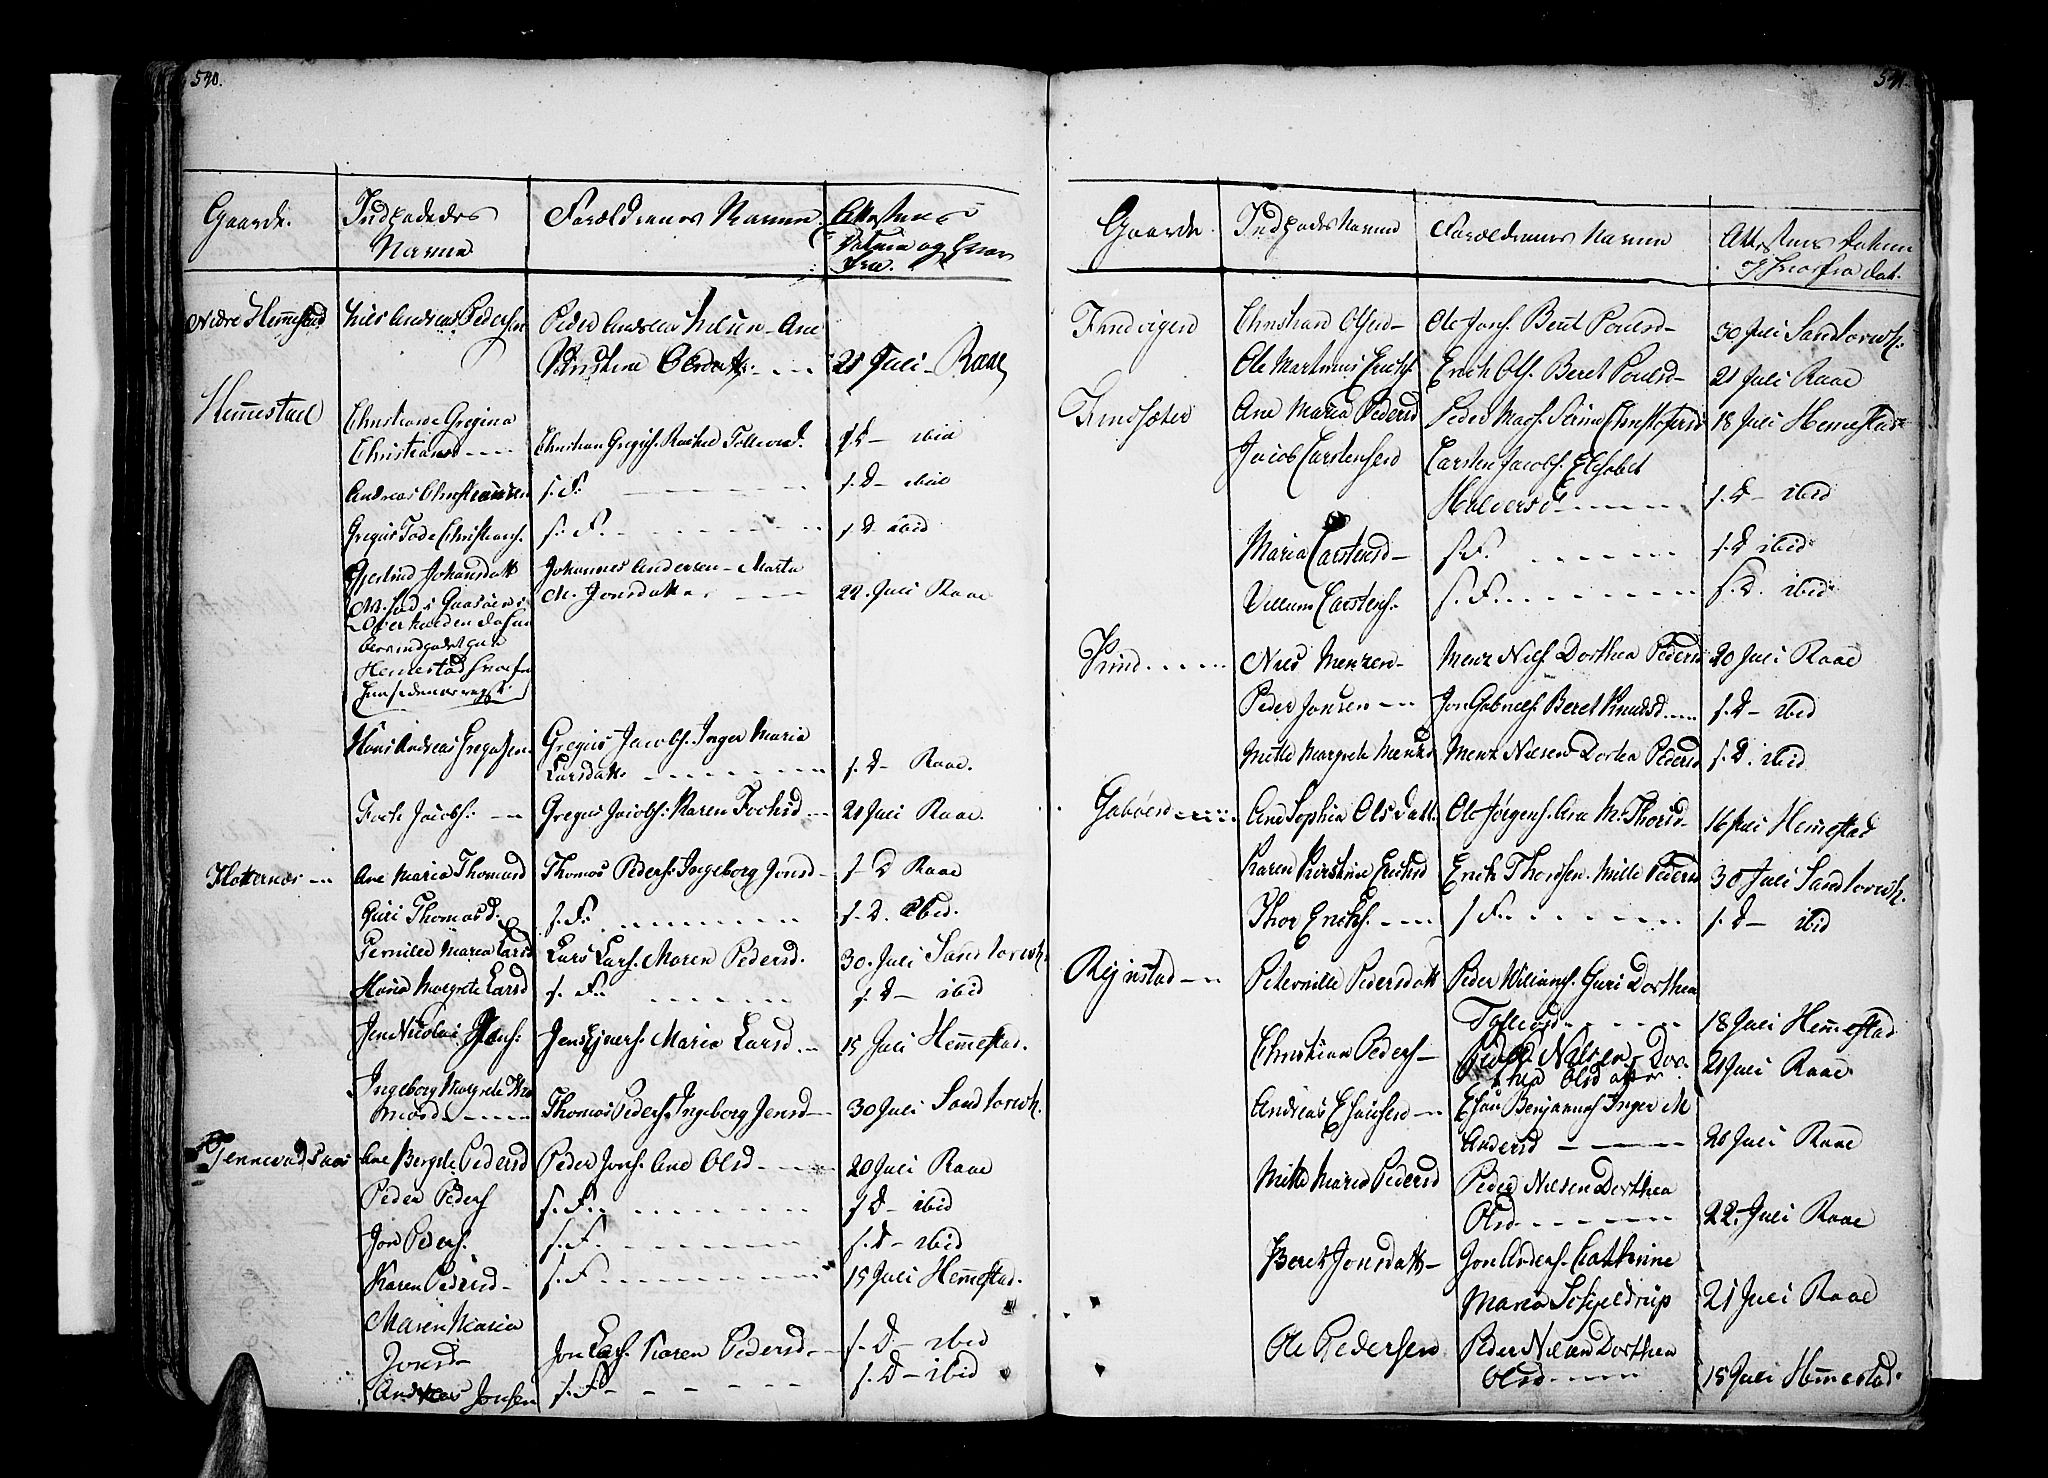 540.
Gaarde.
Indpodedes
Navne
Forældrenes Navne
Attestens
Datum og hvor
fra.
Nedre Hemmestad
Niels Andreas Pedersen
Peder Andreas Nielsen - Ane
Kirstine Olsdatt. - - - 21 Juli - Raae
Hemmestad
Christiane Gregina
Christiansd - - -
Christian Gregius. Rachel Tollevsd. s. D - ibid
Andreas Christiansen s. F. - - - s. D - ibid
Gregus Tode Christians. s. F. - - - s D - ibid
Gjertrud Johansdatt Johannes Andersen - Marta
M. Jonsdatter - - - 22. Juli Raae
Hemestad
Hans Andreas Gregusen Gregius Jacobs. Inger Maria
Larsdatt. - - - s. D - Raae.
Foch Jacobs. - - Gregus Jacobs. Karen Fochsd - - 21 Juli Raae.
Flotternæs - - Ane Maria Thomasd Thomas Peders. Ingeborg Jonsd - s - D Raae
Guri Thomasd. s. F. - - - s - D. ibid.
Pernille Maria Larsd Lars Lars. Maren Pedersd. 30. Juli Sandtorvh.
Maria Margrete Larsd s. F. - - - s. D - ibid
Jens Nicolai Jens. Jens Ejners. Maria Larsd. - 15 Juli Hemmestad.
Ingeborg Margrete Tho
masd. - - - Thomas Peders. Ingeborg Jensd - 30 Juli Sandtorvh.
Tennevadsaas Ane Bergete Pedersd Peder Jons. Ane Olsd - - - 20 Juli Raae
Peder Peders s. F. - - - s D - ibid
Jon Peders. s. F. - - - s. D - ibid
Karen Pedersd - s. F. - - - 15 Juli Hemmestad.
Maren Maria
Jonsd - Jon Lars. Karen Pedersd - - s - D - ibid
Andreas Jonsen s. F. - - - s. D - ibid
541.
Gaarde.
Indpodes Navne
Forældrenes Navne
Attestens Datum
Christian Olsen - Ole Jons. Berit Poulsd - 30 Juli Sandtorvh.
Ole Martinus Erichs. Erich Ols. Beret Poulsd - 21 Juli Raae
Ane Maria Pedersd Peder Mads. Serina Christofersd 18 Juli Hemestad
Jacob Carstensen Carsten Jacobs. Elisabet
Halversd - - - s. D - ibid
Maria Carstensd - s. F. - - - s. D ibid
Villum Carstens. s. F. - - - s. D. ibid
Niels Menzen - Menz Niels. Dorthea Pedersd 20 Juli Raae
Peder Jonsen - - Jon Gabriels. Beret Knudsd - - s. D - ibid
Mette Margrete Mentzd Mentz Nielsen Dortea Pedersd s. D. ibid
Gaboen - - - Ane Sophia Olsdatt. Ole Jørgens. Ane M. Thorsd - 16 Juli Hemmestad
Karen Kirstine Erichsd Erich Thorsen. Mille Pedersd 30 Juli Sandtorvh.
Thor Erichs. - - - s F. - - - s. D - ibid
Rejnstad - - Peternille Pedersdatt Peder Wiliams. Guri Dorthea
Tollevsd - - - 18 Juli Hemmestad
Christian Peders - Peder Nielsen - Dor-
thea Olsdatter 21 Juli Raae
Andreas Esaiesen - - Esau Benjamins Inger M
Andersd - - - 26 Juli Raae
Mette Maria Pedersd Peder Nielsen Dorthea
Olsd - - - 22. Juli Raae
Beret Jonsdatt - Jon Anders. Cathrine
Maria Schjeldrup 21 Juli Raae
Ole Pedersen Peder Nielsen Dorthea
Olsd - - - 15 Juli Hemmestad.